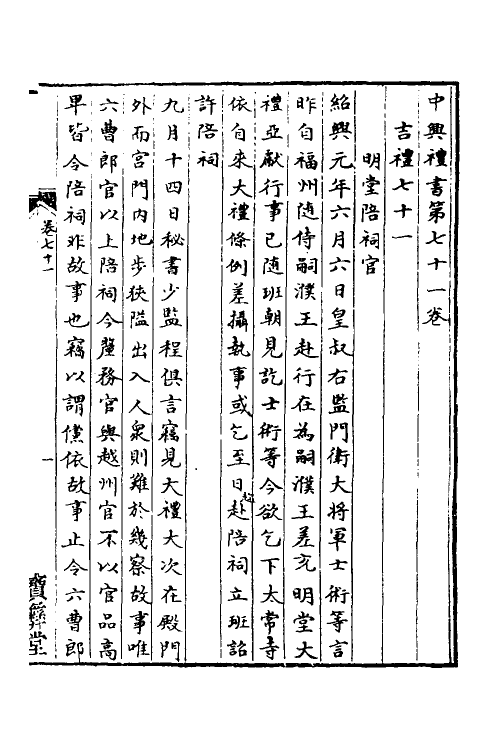 中興禮書第七十一卷
吉禮七十一
明堂陪祠官
紹興元年六月六日皇叔右監門衛大將軍士術等言
昨自福州隨侍嗣濮王赴行在為嗣濮王差充明堂大
禮亞獻行事已隨班朝見訖士術等今欲乞下太常寺
依自來大禮條例差攝執事或乞至日赴陪祠立班詔
許陪祠
九月十四日秘書少監程俱言竊見大禮大次在殿門
外而宮門內地步狹隘出入人衆則難於幾察故事唯
六曹郎官以上陪祠今釐務官與越州官不以官品高
卑皆令陪祠非故事也竊以謂儻依故事止令六曹郎
卷七十一
一
寶彝堂